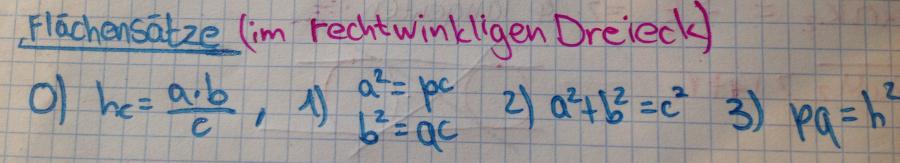 Flächensätze (im rechtwinkligen Dreieck)
0) hc = a·b/c , 1) a² = pc b² = qc 2) a²+b² = c² 3) pq = h²